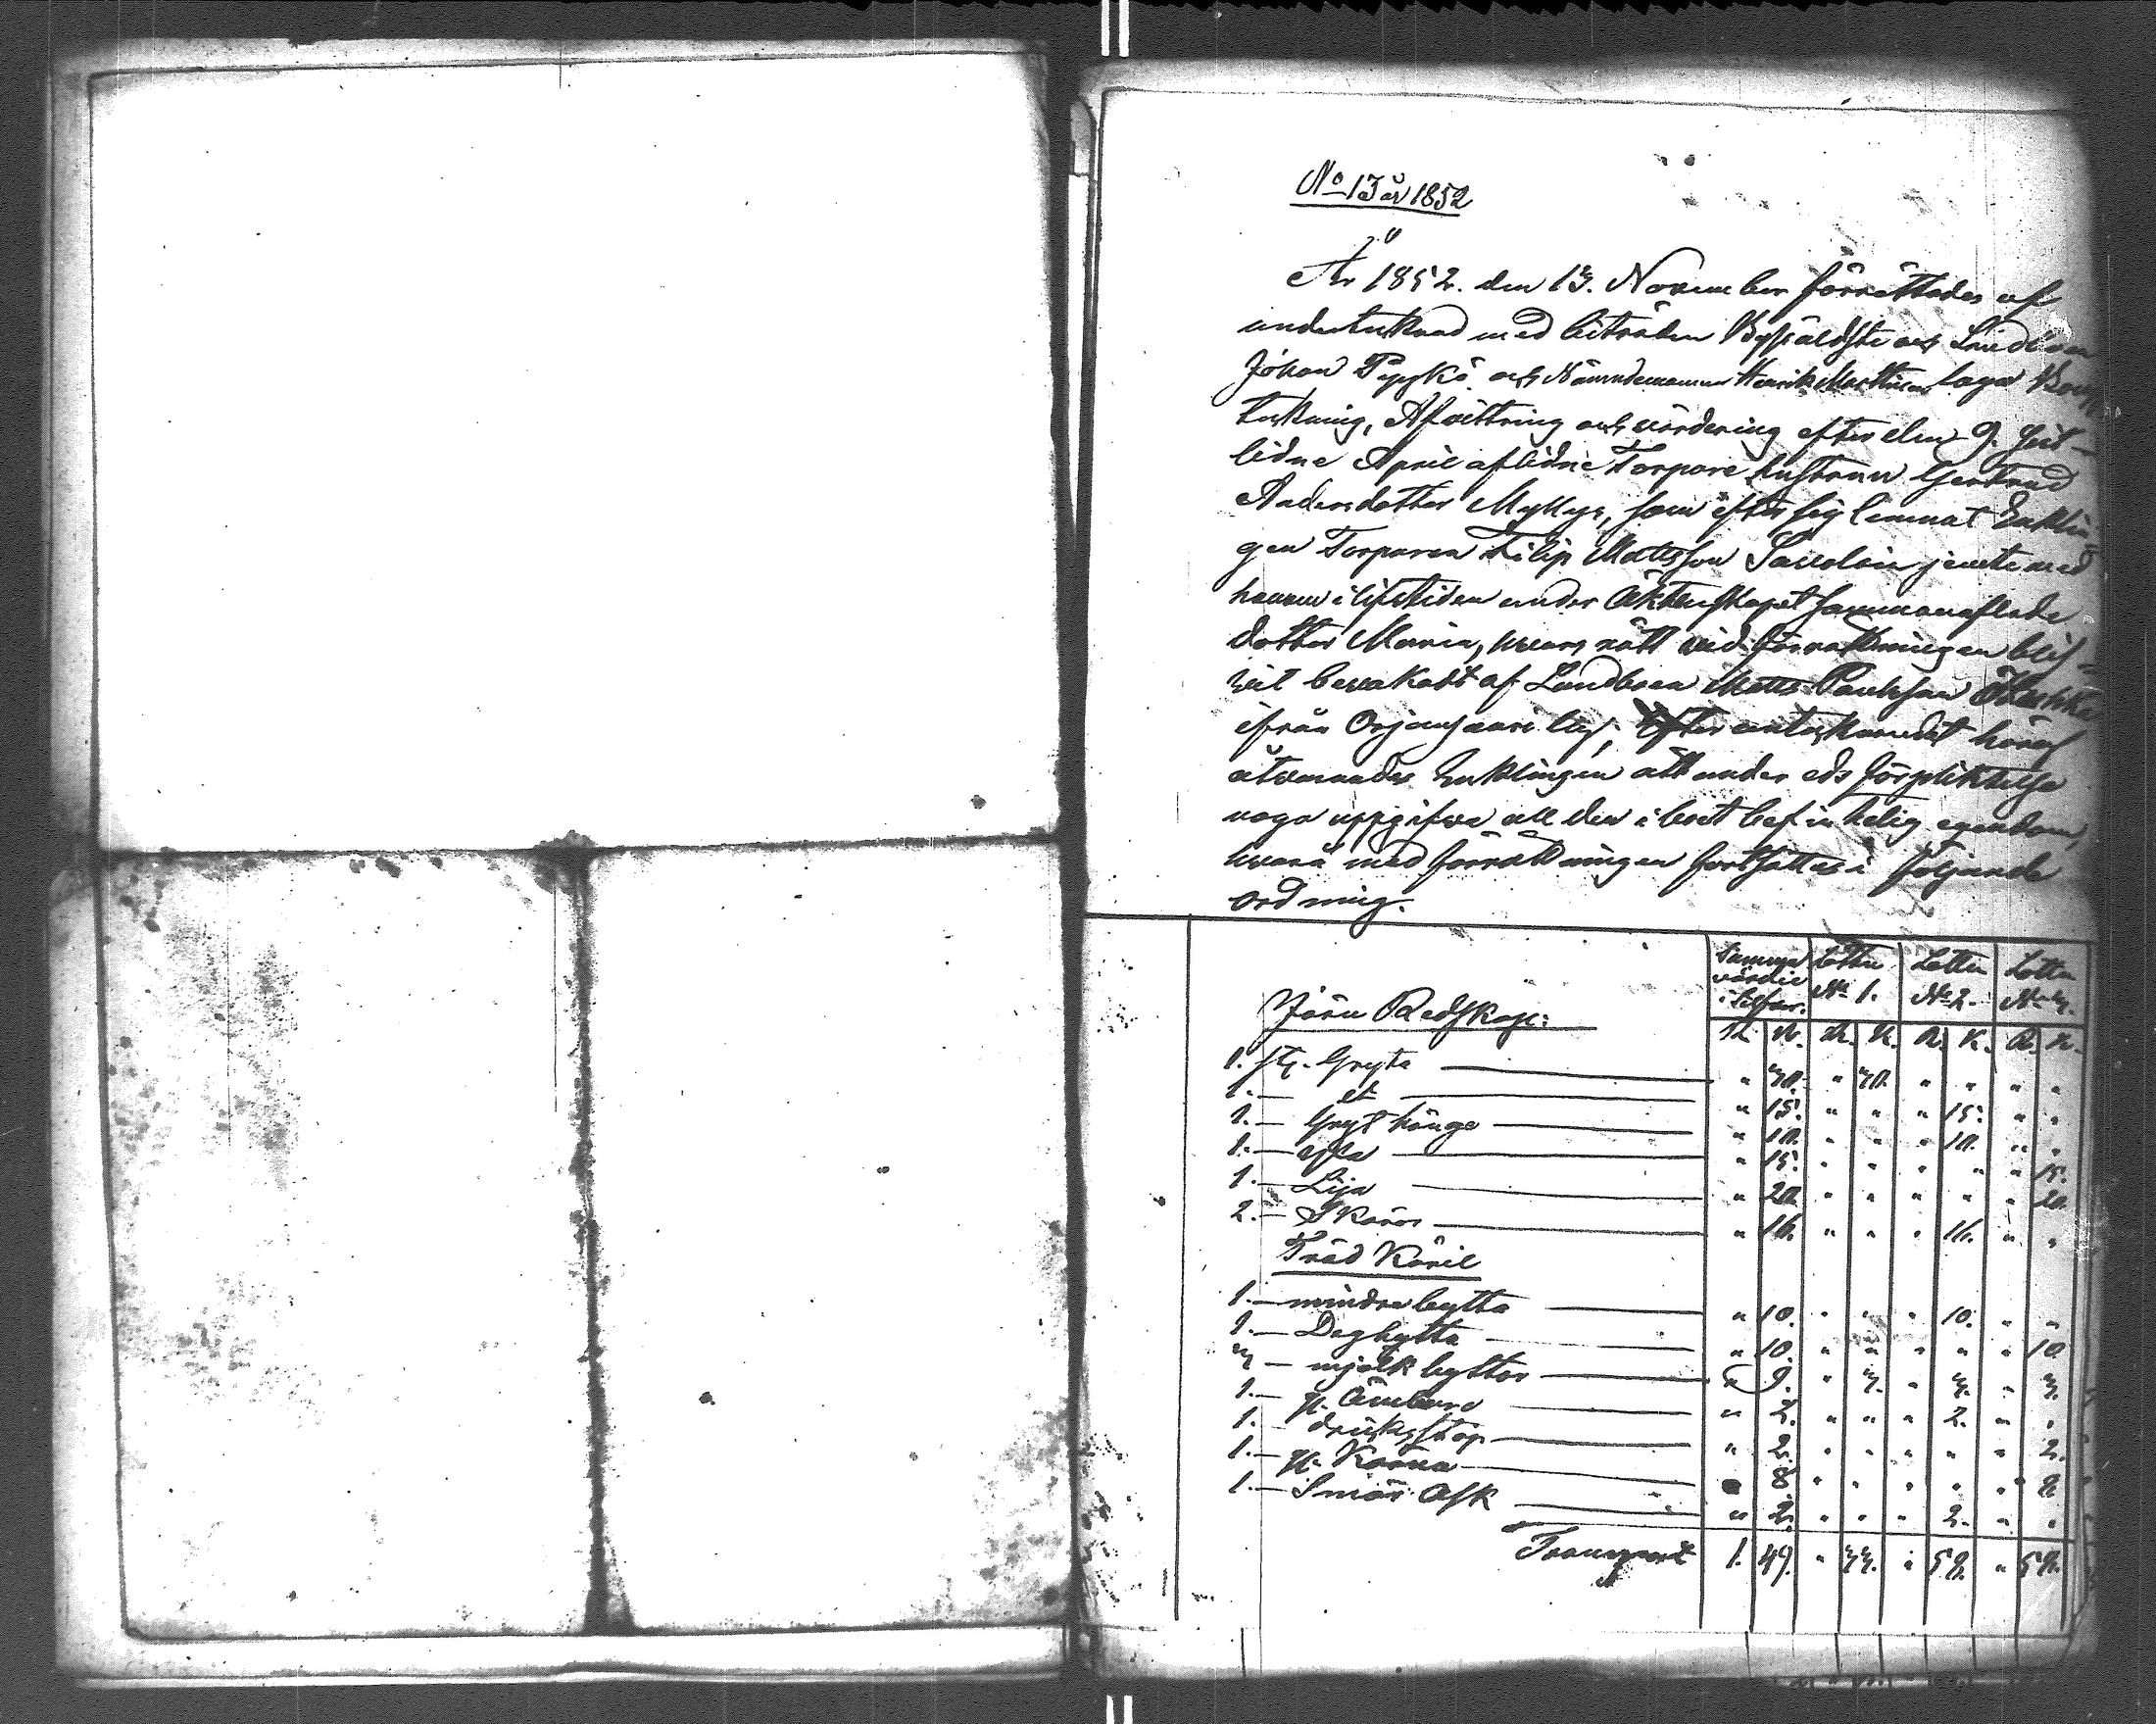 No 13 år 1852
År 1852. den 13. November förrättades af
undertecknad med biträden Byssäldste och Landbon
Johan Pypykö och Nämndemannen Henrik Matthson laga Boupp
teckning, Afvittring och värdering efter den 9. sist-
lidne April aflidne Torpare hustrun Gertrud
Andersdotter Mykyr, som efter sig lemnat Enklin
gen Torparen Filip Mattsson Savolain jemte med
honom i lifstiden under Äktenskapet sammanaflade
dotter Maria, hvars rätt vid förrättningen blif-
vit bevakadt af Landboen Matts Paulsson
ifrån Orjansaari by; Efter enter skeendet häraf
åtvarnades Enklingen att under eds förpliktelse
noga uppgifva all den i boet befintelig egendom,
hvarå med förrättningen fortsattes i följande
ordning.
Summa värdie i Silfver. Lotten No 1. Lotten No 2. Lotten No 3.
Järn Redskap: R. K. R. K. R. K. R. K.
1. st. Gryta " 30. " 30. " " " "
1. — dt " 15. " " " 15. " "
1. — Gryt hänge " 10. " " " 10. " "
1. — Yxa " 15. " " " " " 15.
1. — Lija " 20. " " " " " 20.
2. — Skäror " 16. " " " 16. " "
Träd Käril
1. — mindre bytta " 10. " " " 10. " "
1. — Degbytta " 10. " " " " " 10
3 — mjölk byttor " 9. " 3. " 3. " 3.
1. — g. Ämbare " 2. " " " 2. " "
1. — drickstop " 2. " " " " " 2.
1. — g. Kärna " 8. " " " " " 8
1. — Smör Ask " 2. " " " 2. " "
Transport 1. 49. " 33. " 58. " 58.